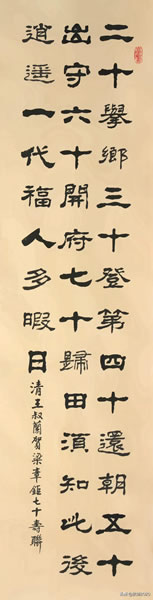 二十舉鄉三十登第四十還朝五十
出守六十開府七十歸田須知此後
逍遥一代福人多暇日
清王叔蘭賀梁章鉅七十壽聯